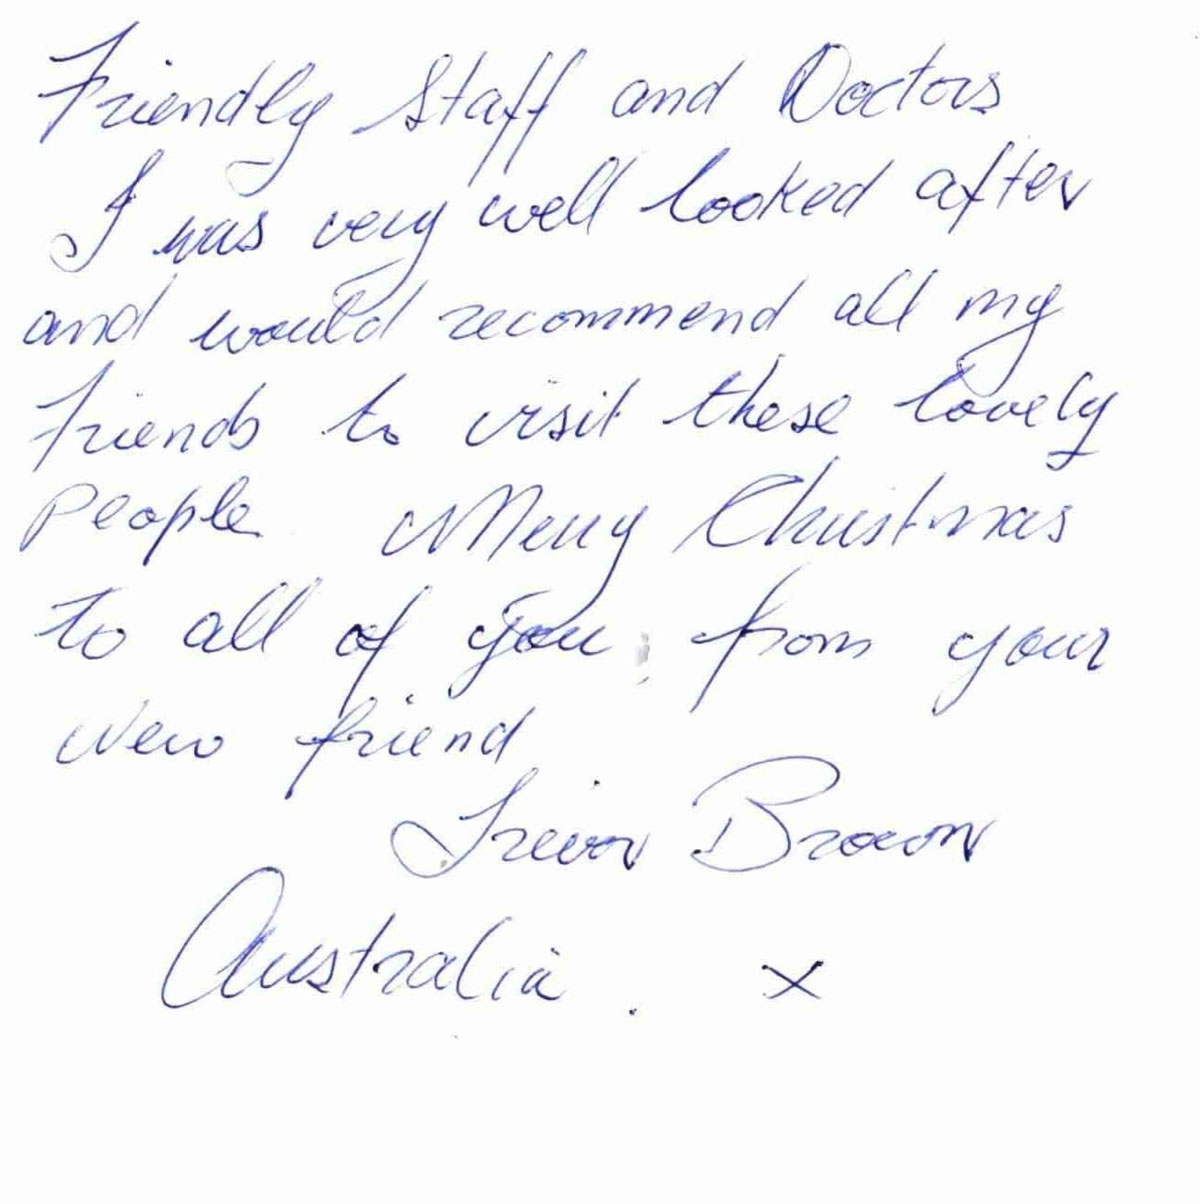 Friendly Staff and Doctors
I was very well looked after
and would recommend all my
Friends to visit these lovely
People. Merry Christmas
to all of you, from your
New friend
Trevor Brown
Australia. X